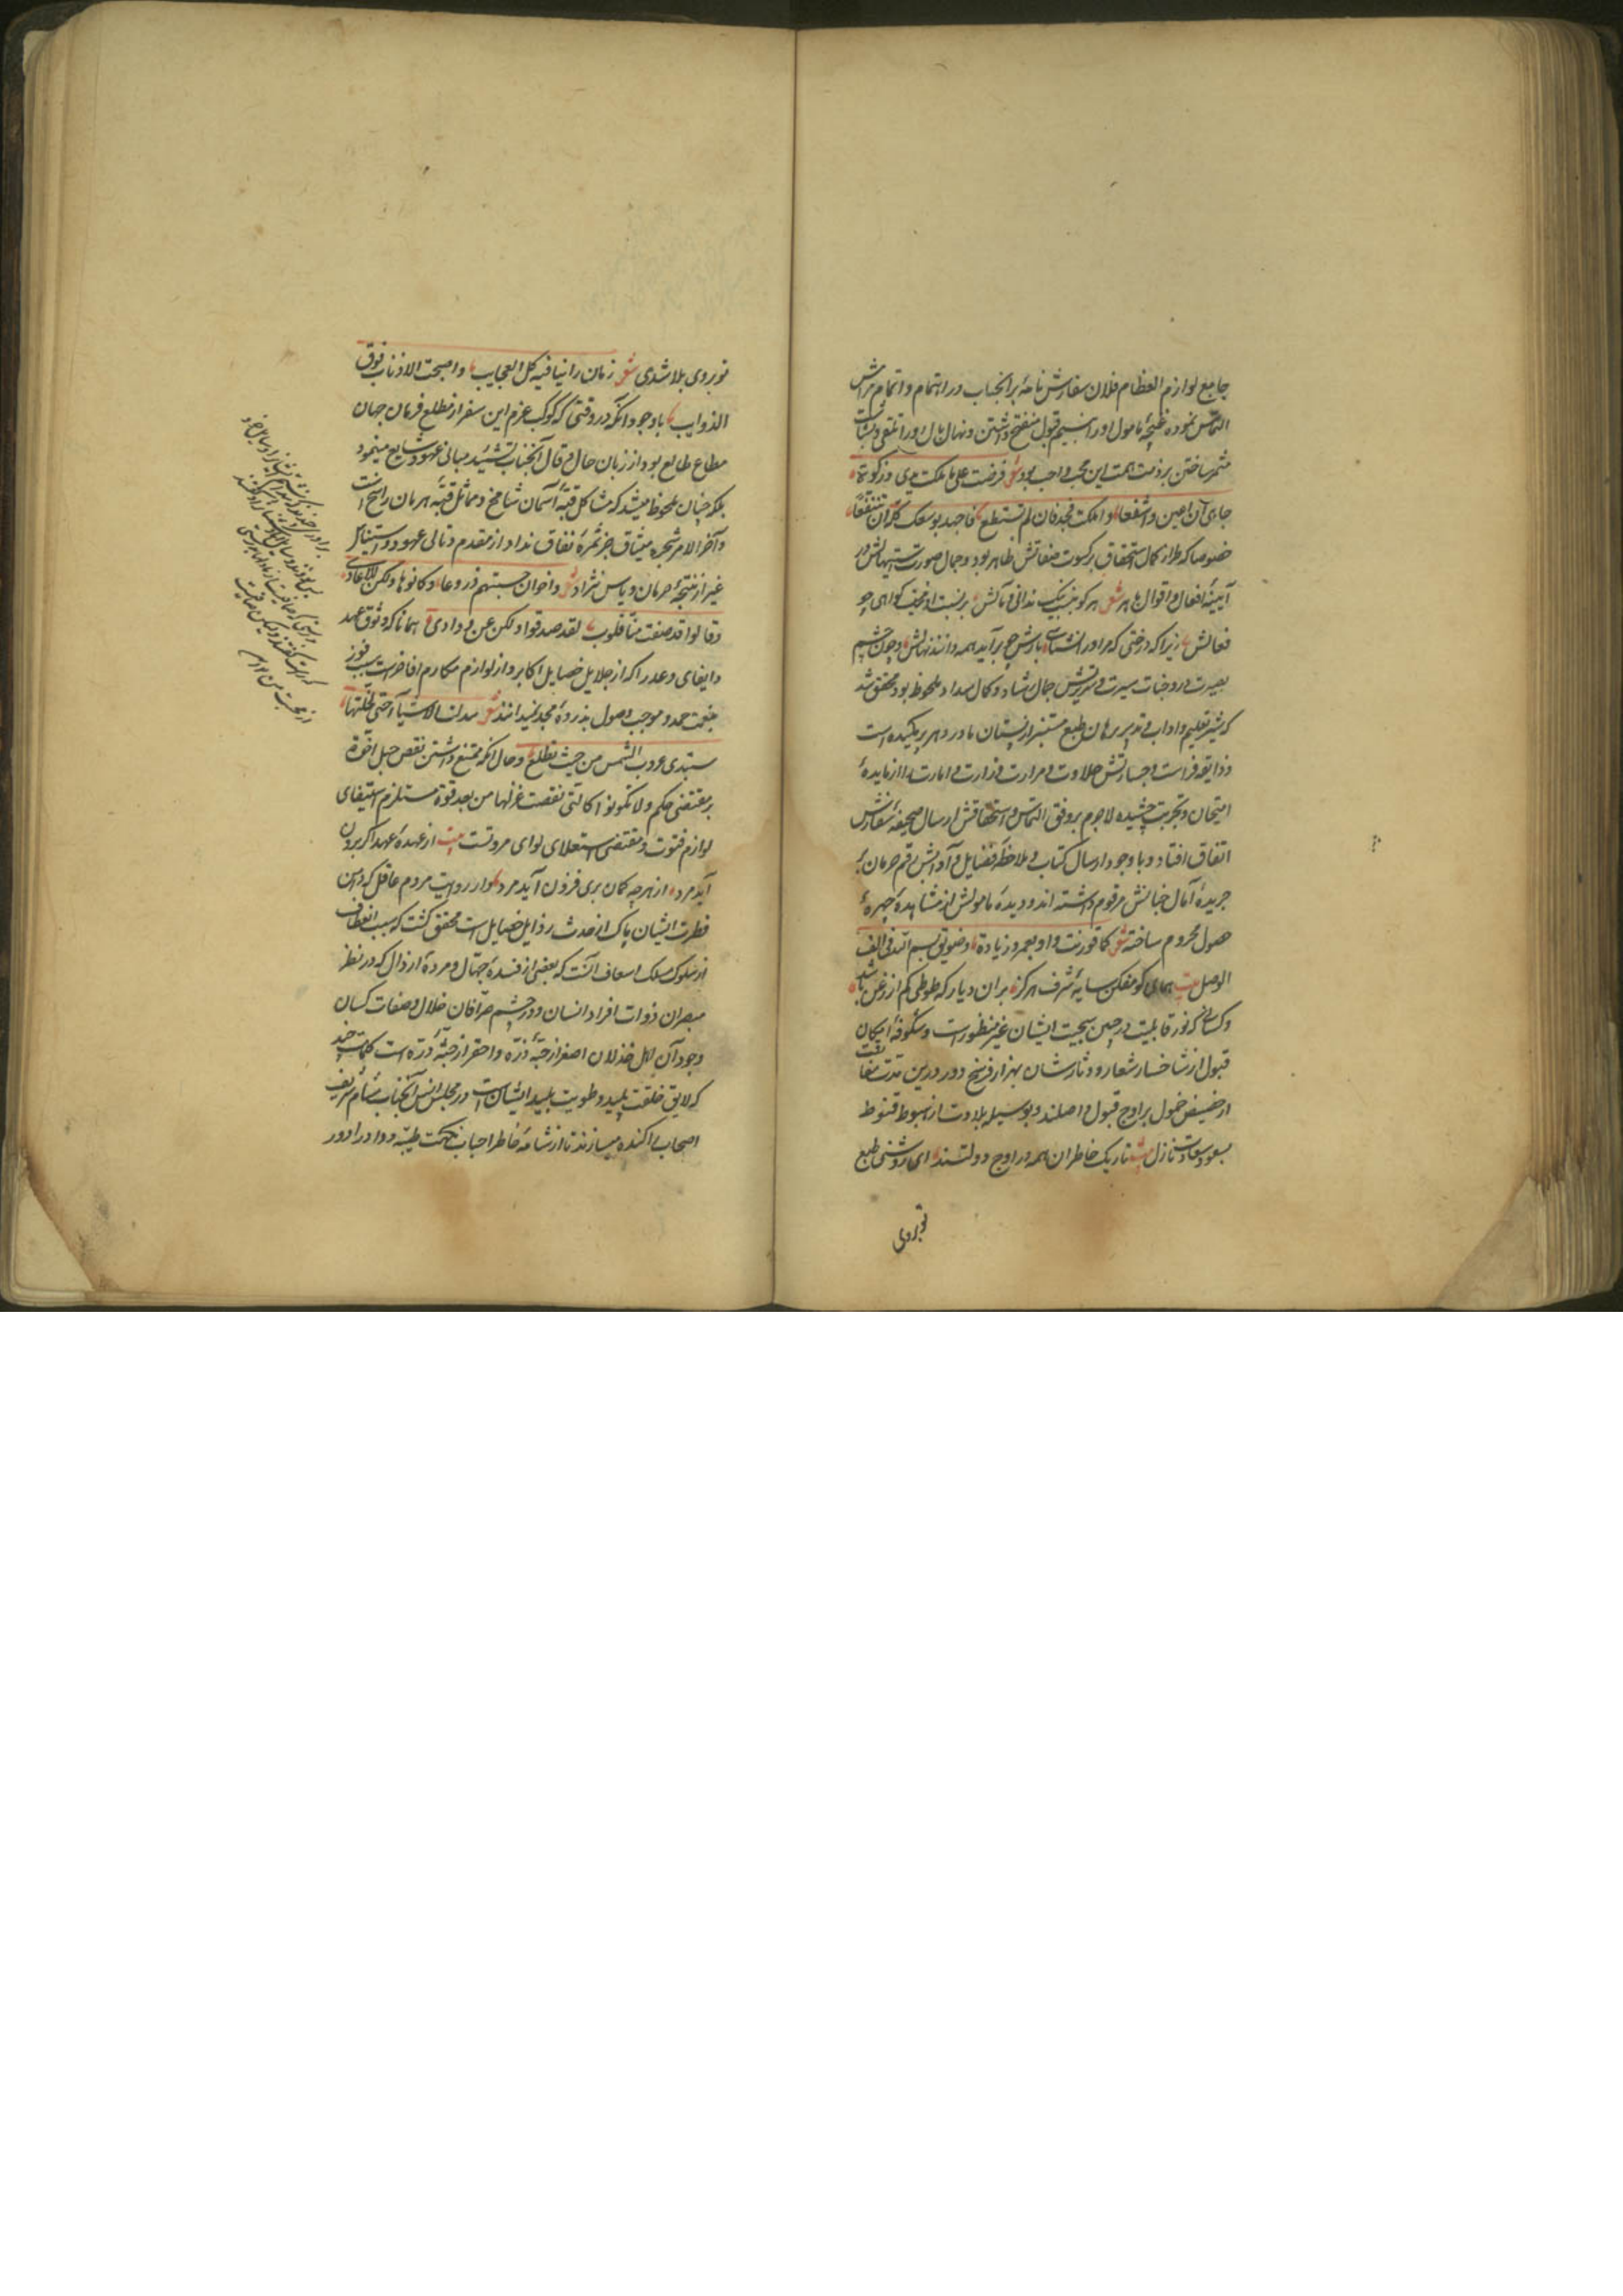 جامع لوازم العظام فلان سفارش نامهٔ برانجناب در اهتمام و اتمام مرامش
التماس نموده غنچهٔ مامول او را بنسیم قبول منفتح داشتن و نهال بال او را
مثمر ساختن بر ذمت همت این محب واجب بود شعر فرضت علی ما ملکت یدی وزکوة
جاهی ان اعین واشفعا واملکت فجد فان لم تستطع فاجهد بوسعک کله ان تنفعا
خصوصا که طراز کمال استحقاق بر کسوت صفاتش ظاهر بود و جمال صورت
آیینهٔ افعال و اقوال باهر شعر هر کو نیک ندانی مآلش بر نسبت او نخست گواهی جو
فعالش زیرا که درختی که مر او را نشناسی بارش چو برآید همه دانند نهالش و چون چشم
بصیرت در وجنات سیرت و سریرتش جمال رشاد و کمال سداد ملحوظ بود محقق شد
که شیر تعلیم و اداب و تدبیر برهان طبع مستنیر از پستان مادر دهر پیر مکیده است
و ذایقه فراست و جسارتش حلاوت و مرارت وزارت و امارت را از مایدهٔ
امتحان و تجربت چشیده لاجرم بر وفق التماس و استحقاقش ارسال صحیفهٔ سفارش
اتفاق افتاد و با وجود ارسال کتاب و ملاحظهٔ فضایل و آدابش رقم حرمان بر
جریدهٔ آمال جنانش مرقوم داشته اند و دیدهٔ مامولش از مشاهدهٔ چهرهٔ
حصول محروم ساخته شعر کما قورنت واو بعمرو زیادة وضویق بسم الله فی الف
الوصل بیت همای گو مفکن سایهٔ شرف هرگز بران دیار که طوطی کم از زغن باشد
و کسانی که نور قابلیت در جبین سجیت ایشان غیر منظورست و شکوفهٔ امکان
قبول از شاخسار شعار و دثارشان بهزار فرسخ دور درین مدت
از حضیض خمول بر اوج قبول واصلند و بوسیلهٔ بلادت از هبوط قنوط
بصعود سعادت نازل شعر تاریک خاطران همه در اوج دولتند ای روشنی طبع
تو بر وی
تو بر وی بلا شدی شعر زمان راینا فیه کل العجایب واصبحت الاذناب فوق
الذوایب با وجود آنکه در وقتی که کوکب عزم این سفر از مطلع فرمان جهان
مطاع طالع بود از زبان حال و قال آنجناب تشیید مبانی عهود شایع مینمود
بلکه چنان ملحوظ میشد که مشاکل قبهٔ آسمان شامخ و مماثل قبهٔ هرمان راسخ است
و آخر الامر شجرهٔ میثاق جز ثمرهٔ نفاق نداد و از مقدم و تالی عهود و استیناس
غیر از نتیجهٔ حرمان و یاس نزاد شعر واخوان حسبتهم دروعا وکانوها ولکن للاعادی
وقالوا قد صفت منا قلوب لقد صدقوا ولکن عن ودادی همانا که وثوق عهد
و ایفای وعد را که از جلایل خصایل اکابر و از لوازم مکارم افاخرست سبب فوز
بنعمت حمد و موجب وصول بذروهٔ مجد نمیدانند شعر تبدلت الاشیاء حتی لخلتها
ستبدی غروب الشمس من حیث تطلع و حال آنکه ممتنع داشتن نقض حبل اخوة
بر مقتضی حکم ولا تکونوا کالتی نقضت غزلها من بعد قوة مستلزم استیفای
لوازم فتوت و مقتضی استعلای لوای مروتست بیت از عهدهٔ عهد اگر برون
آید مرد از هرچه گمان بری فزون آید مرد و از روایت مردم عاقل که دامن
فطرت ایشان پاک از حدث رذایل خصایل است محقق گشت که سبب انعطاف
از سلوک مسلک اسعاف آنست که بعضی از فسدهٔ جهال و مردهٔ ارذال که در نظر
مبصران ذوات افراد انسان و در چشم صرافان خلال و صفات کسان
وجود آن اهل خذلان اصغر از حبهٔ ذره و احقر از جثهٔ ذره است کلمات چند
که لایق خلقت پلید و طویت بلید ایشان است در مجلس انس آنجناب بمشام شریف
اصحاب پراکنده میسازند تا از شامهٔ خاطر احباب نکهت طیبه وداد را دور